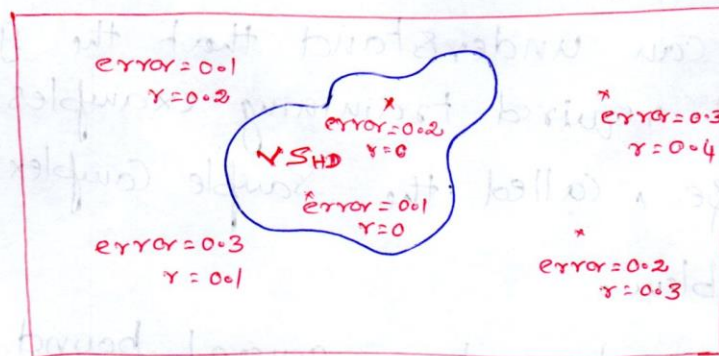 error=0.1
r=0.2
error=0.2
r=0
error=0.3
r=0.4
VS_HD
error=0.1
r=0
error=0.3
r=0.1
error=0.2
r=0.3